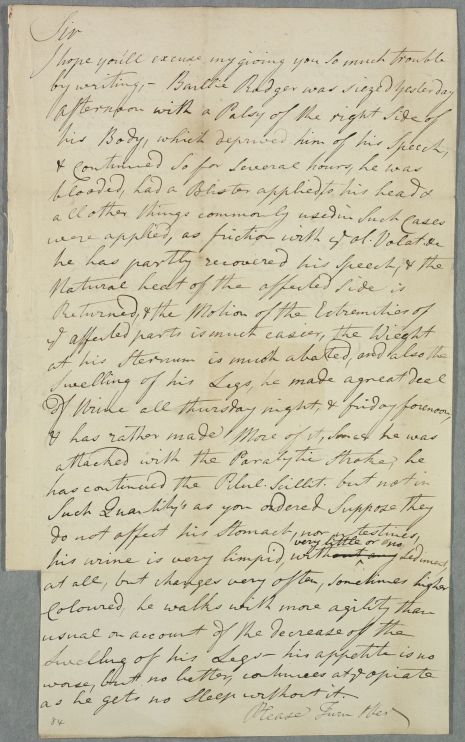 Sir
I hope you'll excuse my giving you so much trouble
by writing, - Baillie Rodger was siezed yesterday
afternoon with a Palsy of the right Side of
his Body, which deprived him of his Speech,
& Continued So for Several hours, he was
blooded, had a Blister applied to his head &
all other things commonly used in Such Cases
were applied, as friction with ol. Volat. &c
he has partly recovered his Speech, & the
Natural heat of the affected Side is
Returned, & the Motion of the Extremities of
ye affected parts is much easier, the Wieght
at his Sternum is much abated, and also the
Swelling of his Legs, he made a great deal
of Urine all thursday night, & friday forenoon,
& has rather made More of it, Since he was
attacked with the Paralytic Stroke, he
has continued the Pilul. Scillit. but not in
Such Quantitys as you ordered Suppose they
do not affect his Stomach, nor intestines,
his urine is very limpid with very little or no Sediment,
at all, but changes very often, Sometimes higher
Coloured, he walks with more agility than
usual on account of the decrease of the
Swelling of his Legs - his appetite is no
worse, but no better, continues at ye opiate
as he gets no Sleep without it
Please Turn Over
84